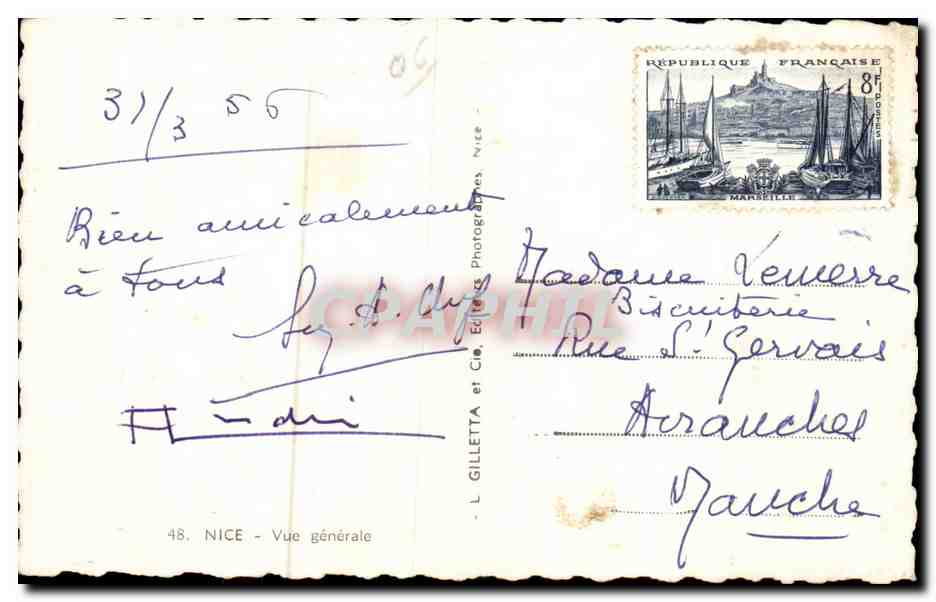 06
31/3 56
Bien amicalement
à tous
48. NICE - Vue générale
- L. GILLETTA et Cie, Editeurs Photographes, Nice -
CPAPHIL
RÉPUBLIQUE FRANÇAISE
8F
POSTES
MARSEILLE
Madame Lemerre
Biscuiterie
Rue St Gervais
Avranches
Manche